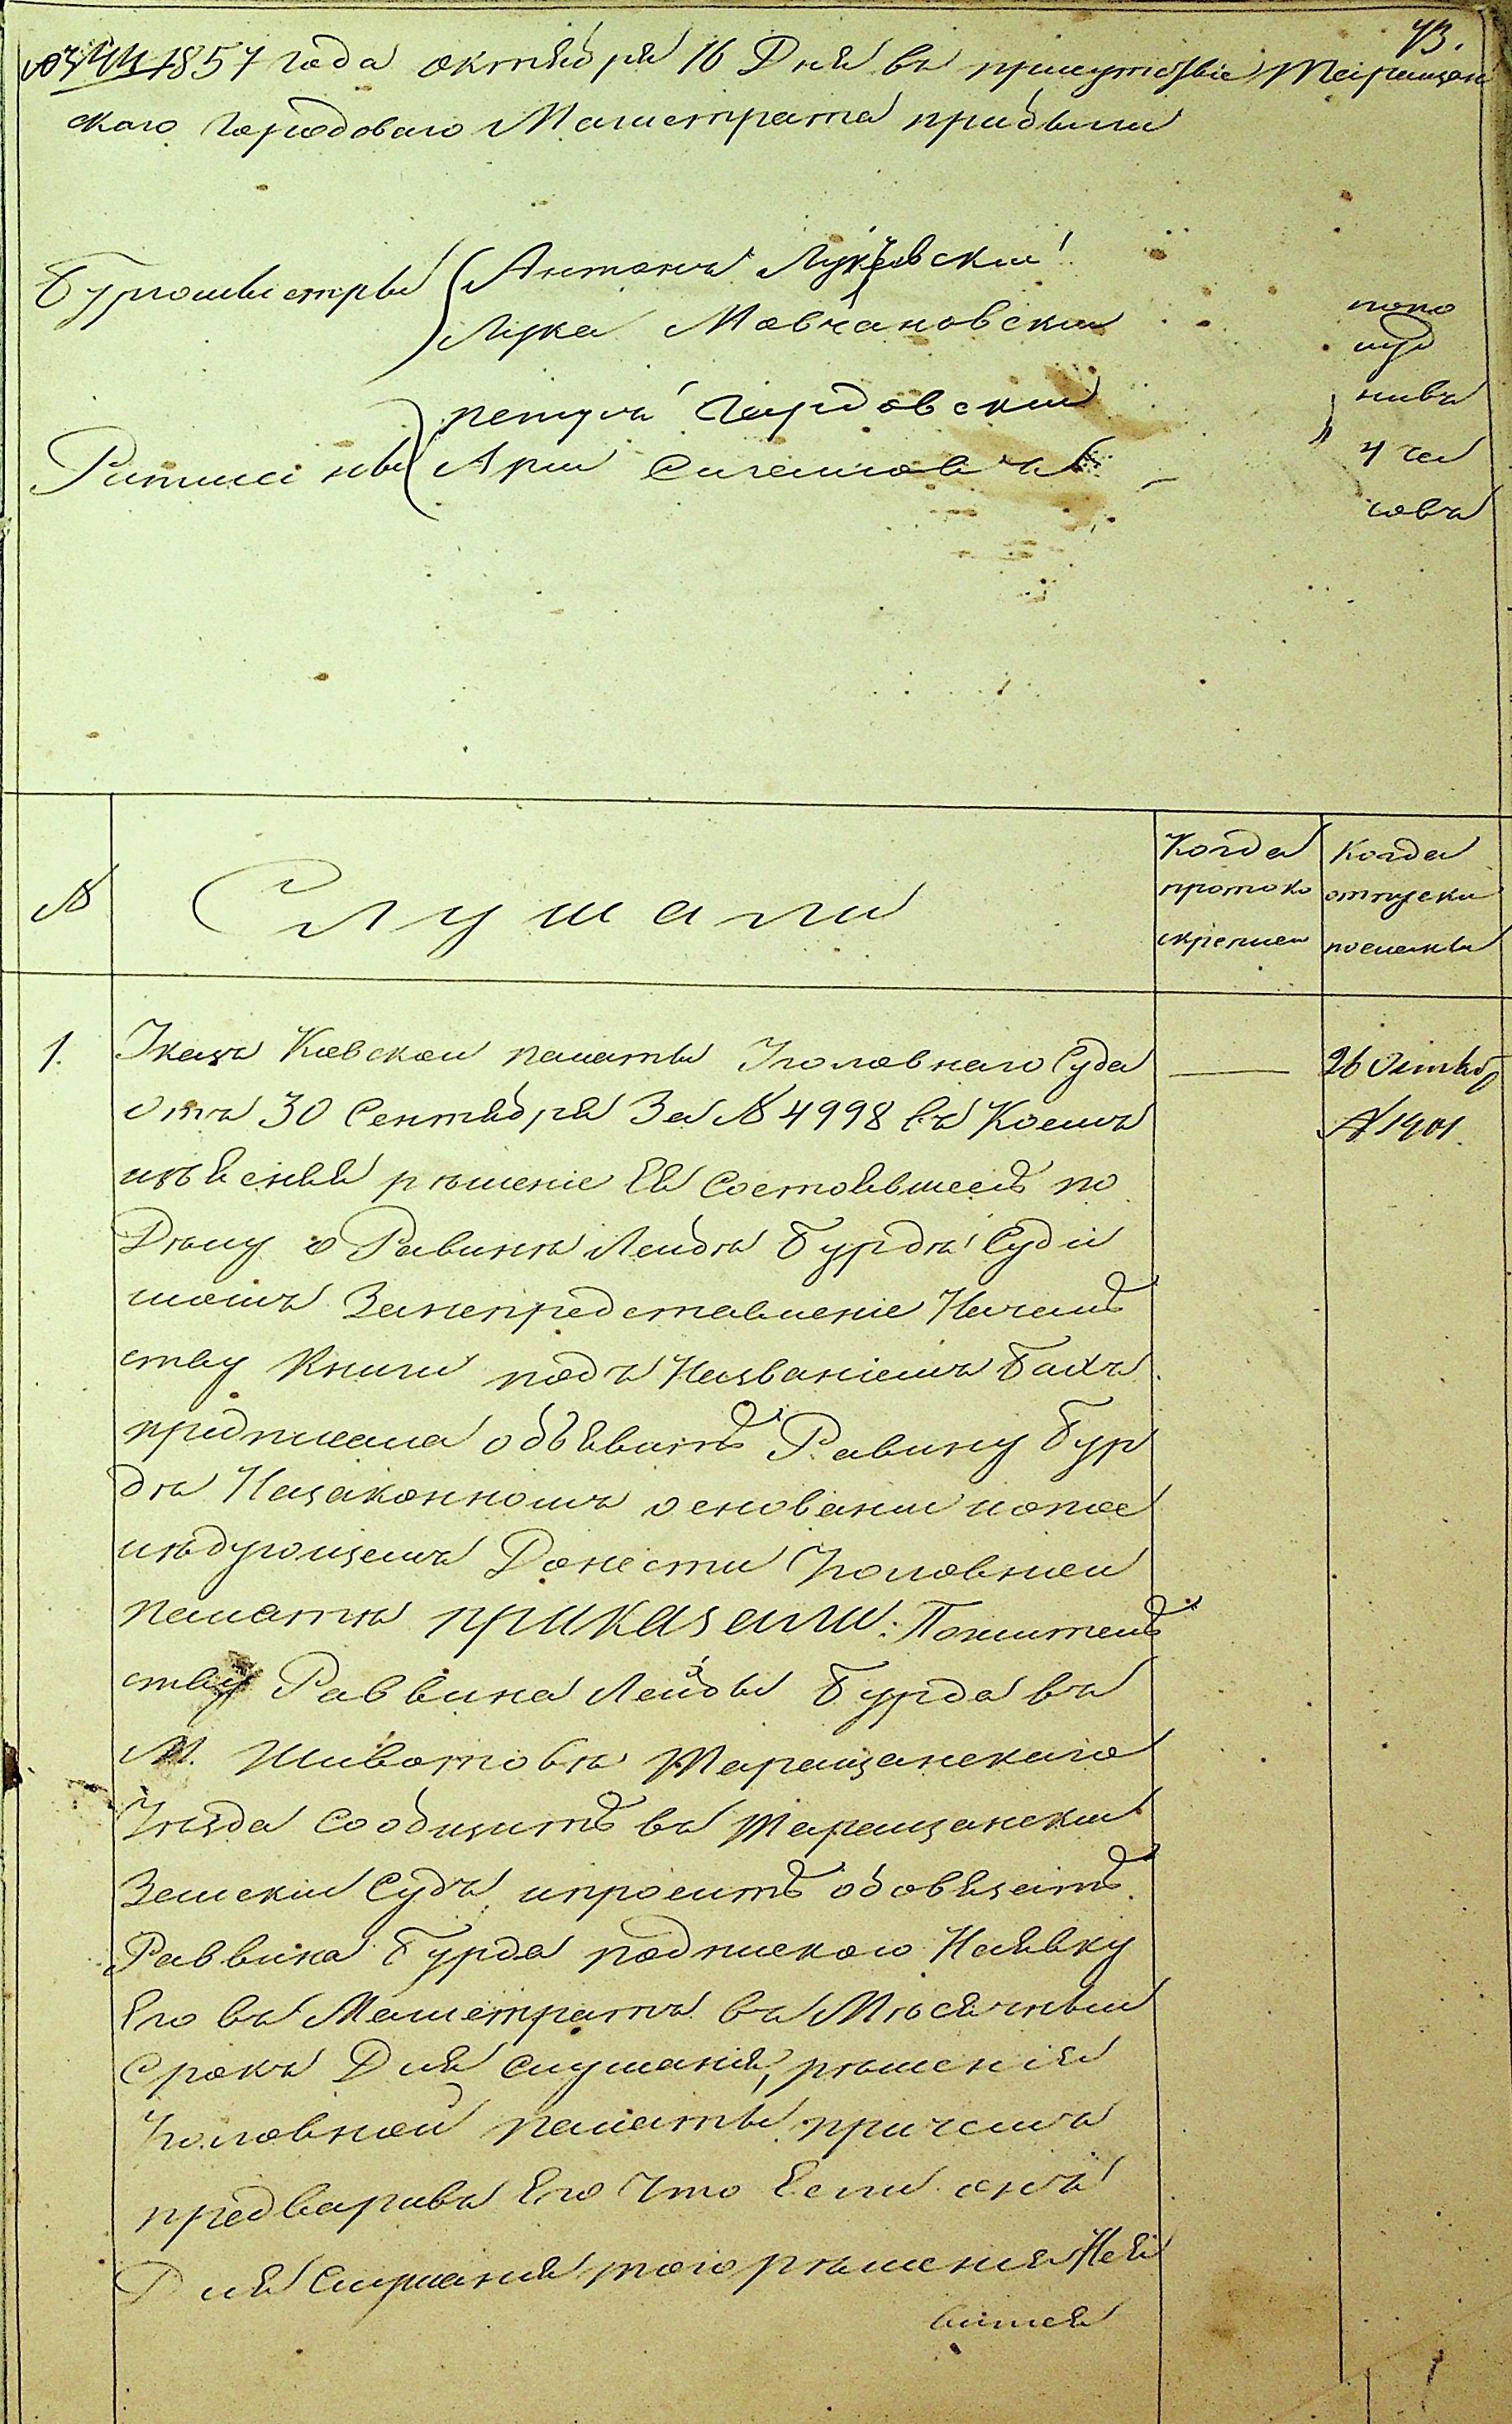 43.
1857 года октября 16 Дня въ присутствіе Таращан
скаго городоваго Магистрата прибыли
Бургомистры
Антонъ
Лука Мовчановскии
Ратманы
петръ Гвурдовскии
попо
луд
нивъ
4 ча
совъ
№
Слушали
Когда
протоко
скрепленъ
Когда
отпуски
посланы
1.
Указъ Киевскои палаты Уголовнаго Суда
отъ 30 Сентября За № 4998 въ Коемъ
изъясняя рѣшеніе Ея Состоявшеесь по
Дѣлу о Равинѣ Лейбѣ Бурдѣ Суди
момъ Занепредставленіе Началь
ству Книги подъ Названіемъ Бахъ
предписала объявить Равину Бур
дѣ Назаконномъ основаніи ипопос
лѣдующемъ Донести Уголовнои
палатѣ приказали: Пожитель
ству Раввина Лейбы Бурда въ
М. Животовѣ Таращанскаго
Уѣзда Сообщить въ Таращанскии
Земскии Судъ, ипросить обовязать
Раввина Бурда подпискою Наявку
Его въ Магистратъ въ Мѣсячныи
Срокъ Для Слушанія, рѣшенія
Уголовной палаты, причемъ
предваривъ Его Что Если онъ
Для Слушанія, того рѣшенія Нея
вится
26 Октяб
№ 1901.